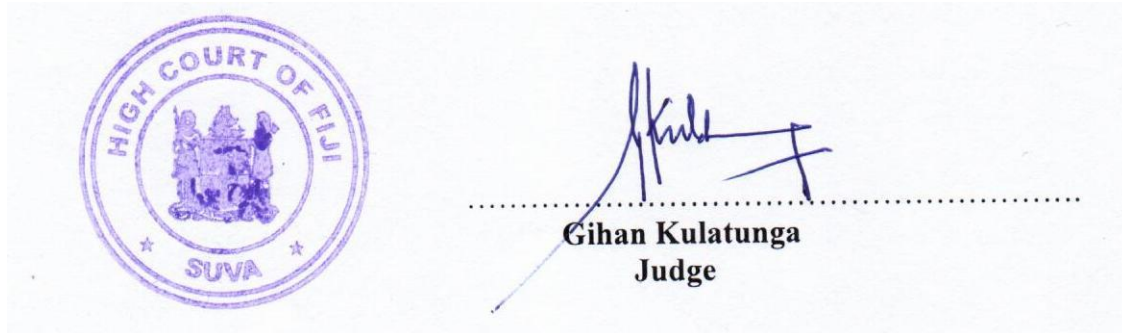 HIGH COURT OF FIJI
SUVA
Gihan Kulatunga
Judge